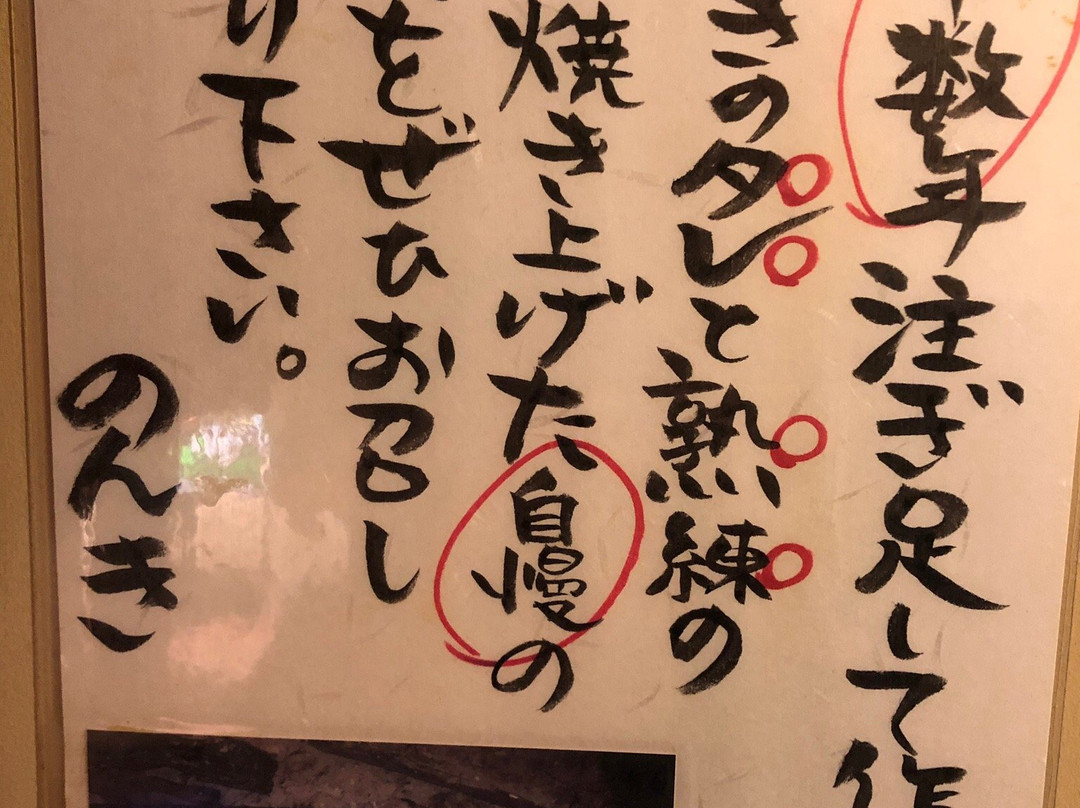 数年注ぎ足して作
きのタレと熟練の
焼き上げた自慢の
をぜひお召し
り下さい。
のんき